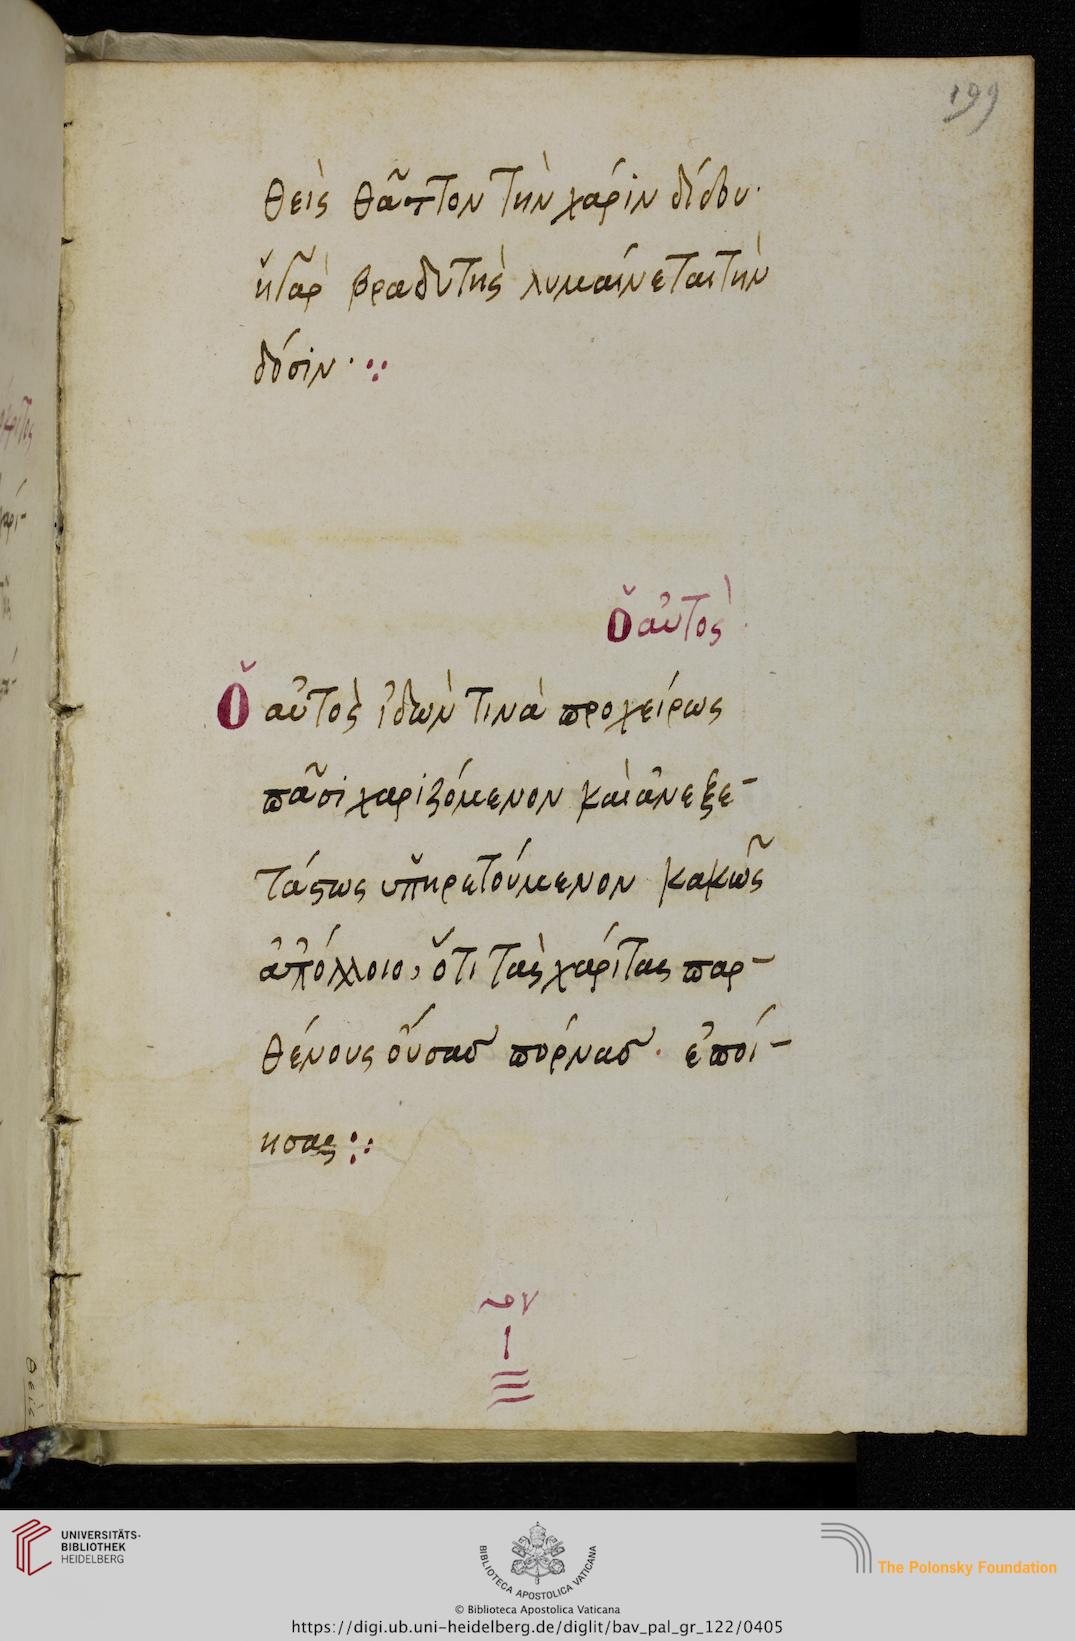 199
θεὶς θᾶττον τὴν χάριν δίδου·
ἡ γὰρ βραδυτὴς λυμαίνεται τὴν
δόσιν· ⁘
Ὁ αὐτὸς
Ὁ αὐτὸς ἰδὼν τινὰ προχείρως
πᾶσι χαριζόμενον καὶ ἀνεξε-
τάστως ὑπηρετούμενον κακῶς
ἀπόλλοιο, ὅτι τὰς χάριτας παρ-
θένους οὔσας πόρνας· ἐποί-
ησας ⁘
UNIVERSITÄTS-
BIBLIOTHEK
HEIDELBERG
BIBLIOTECA APOSTOLICA VATICANA
The Polonsky Foundation
© Biblioteca Apostolica Vaticana
https://digi.ub.uni-heidelberg.de/diglit/bav_pal_gr_122/0405